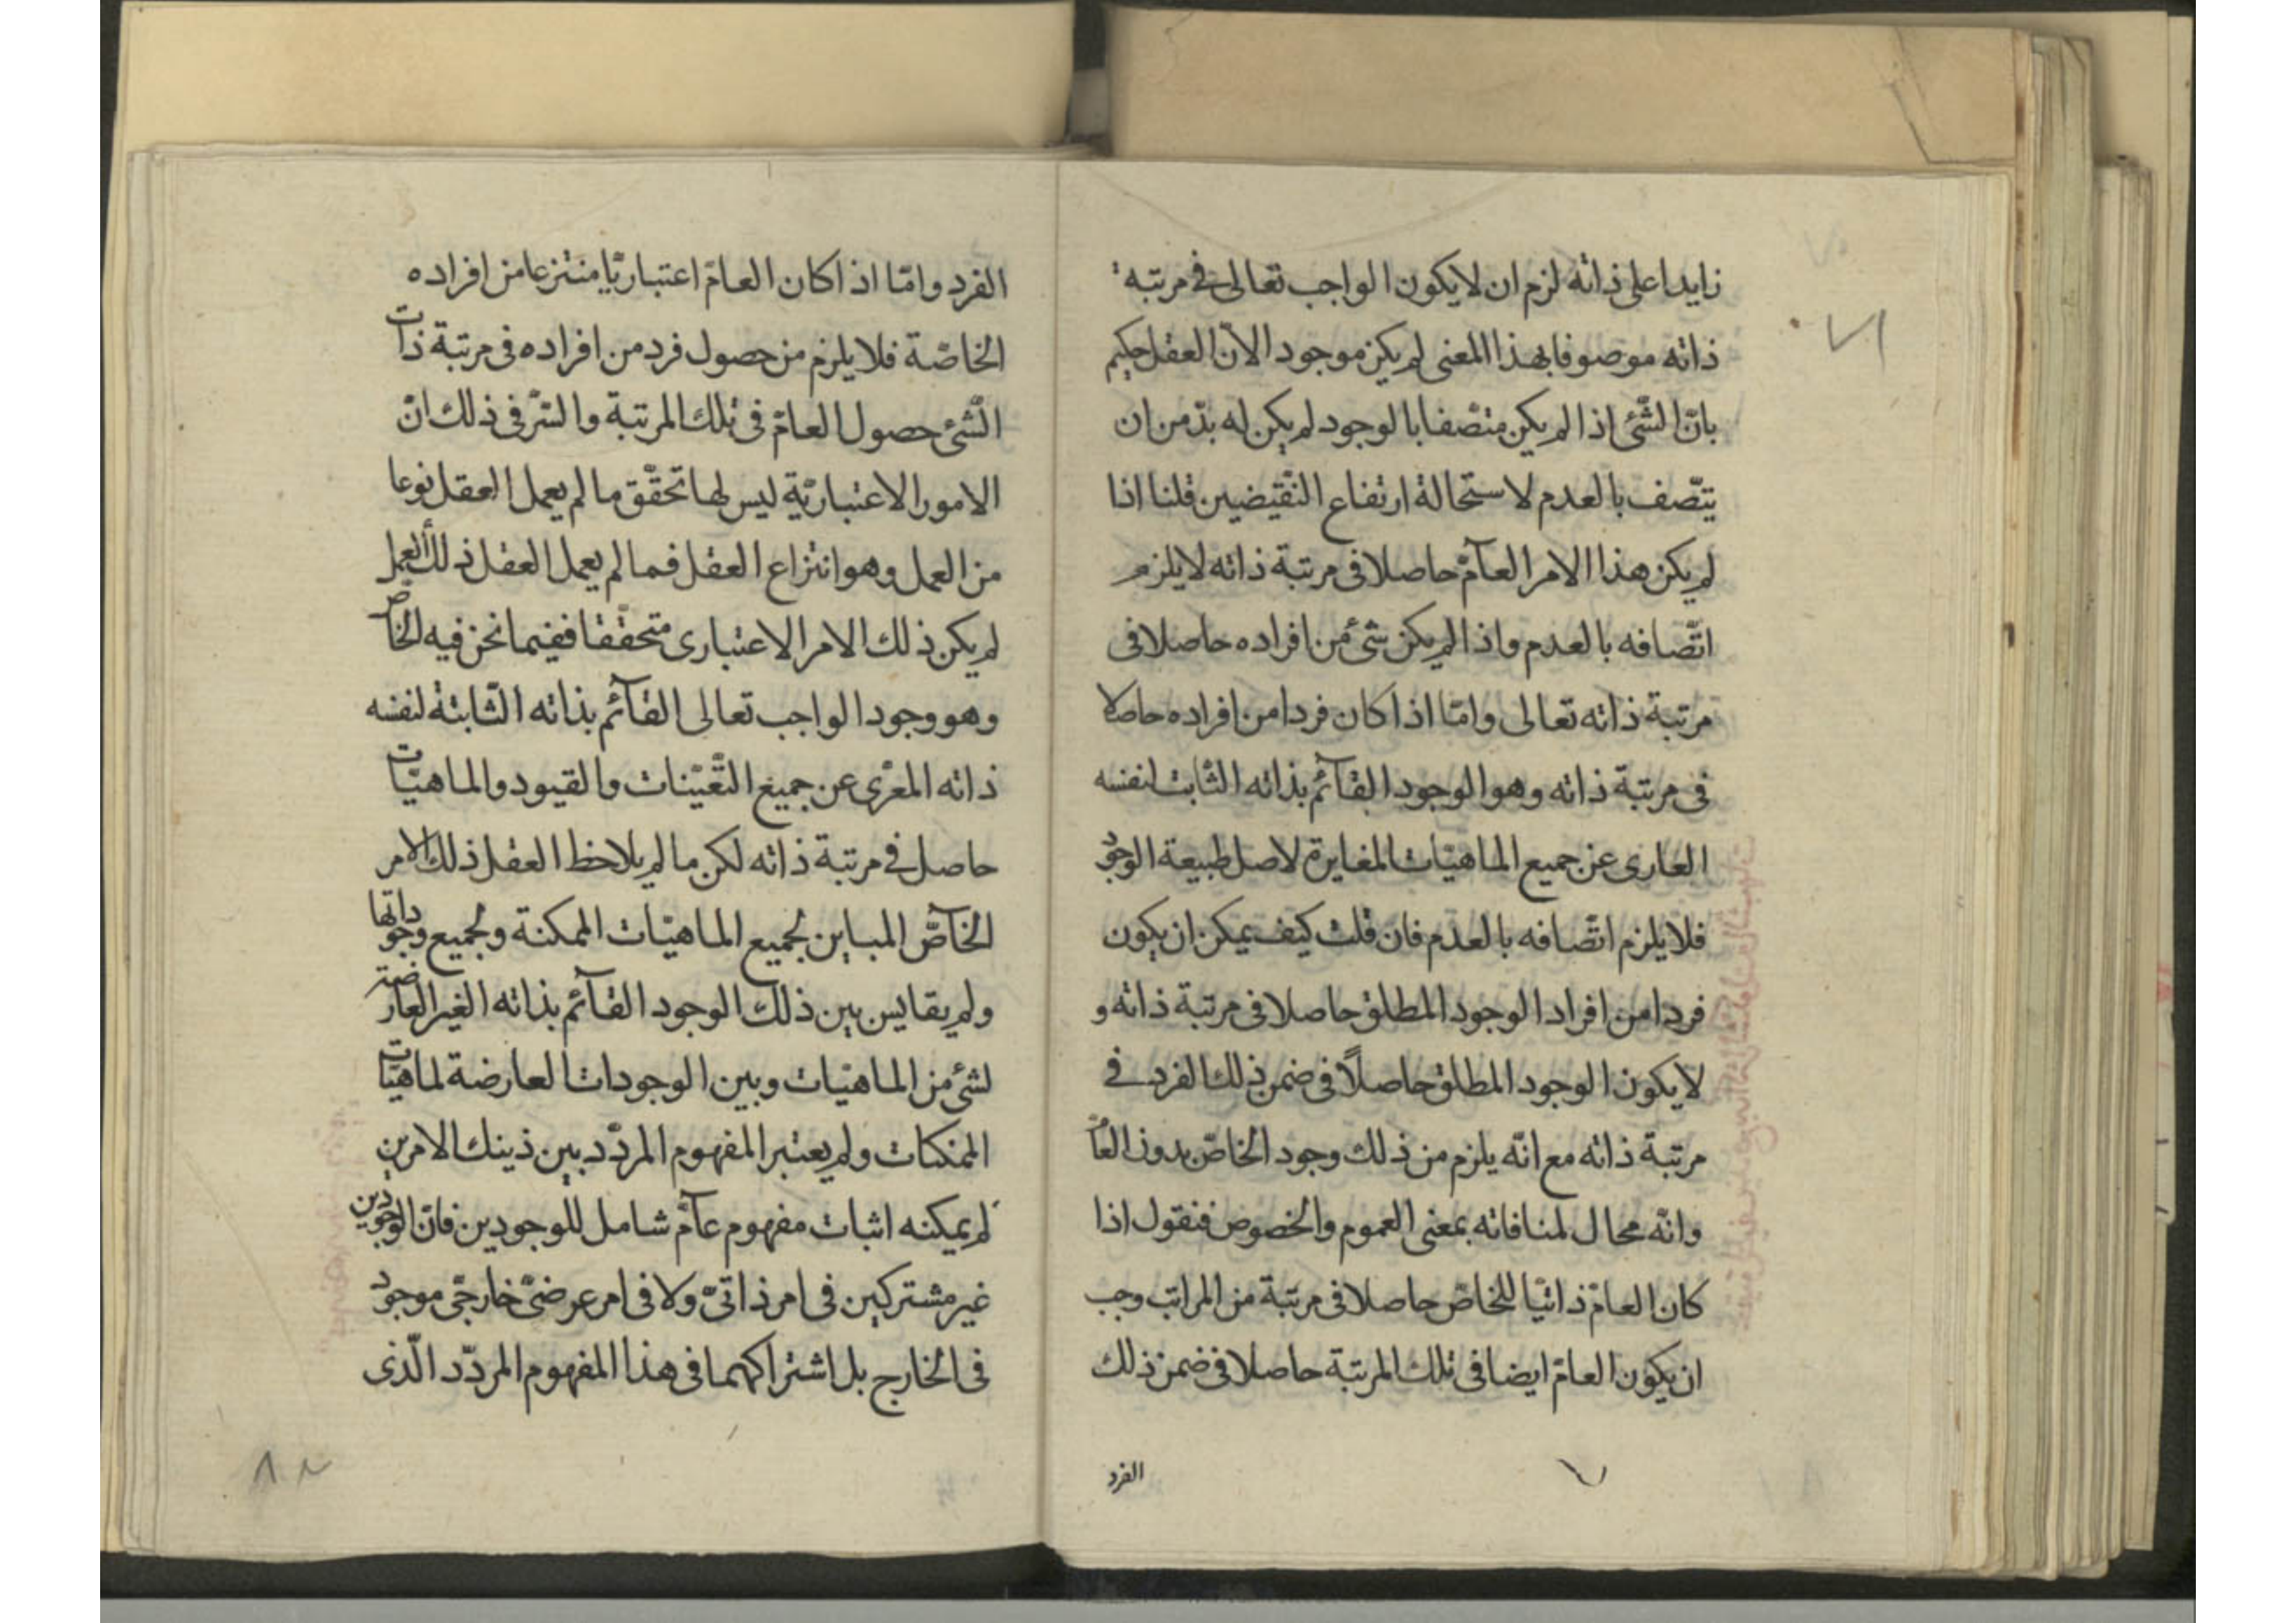 زايدا على ذاته لزم ان لا يكون الواجب تعالى فى مرتبة
ذاته موصوفا بهذا المعنى لم يكن موجودا لانّ العقل حكيم
بانّ الشّئ اذا لم يكن متّصفا بالوجود لم يكن له بدّ من ان
يتّصف بالعدم لاستحالة ارتفاع النّقيضين قلنا اذا
لم يكن هذا الامر العآمّ حاصلا فى مرتبة ذاته لا يلزم
اتّصافه بالعدم واذا لم يكن شئ من افراده حاصلا فى
مرتبة ذاته تعالى وامّا اذا كان فردا من افراده حاصلا
فى مرتبة ذاته وهو الوجود القآئم بذاته الثّابت لنفسه
العارى عن جميع الماهيّات المغايرة لاصل طبيعة الوجود
فلا يلزم اتّصافه بالعدم فان قلت كيف يمكن ان يكون
فردا من افراد الوجود المطلق حاصلا فى مرتبة ذاته و
لا يكون الوجود المطلق حاصلاً فى ضمن ذلك الفرد فى
مرتبة ذاته مع انّه يلزم من ذلك وجود الخاصّ بدون العامّ
وانّه محال لمنافاته بمعنى العموم والخصوص فنقول اذا
كان العامّ ذاتيّا للخاصّ حاصلا فى مرتبة من المراتب وجب
ان يكون العامّ ايضا فى تلك المرتبة حاصلا فى ضمن ذلك
الفرد
الفرد وامّا اذا كان العامّ اعتباريّا منتزعا من افراده
الخاصّة فلا يلزم من حصول فرد من افراده فى مرتبة ذات
الشّئ حصول العامّ فى تلك المرتبة والسّرّ فى ذلك انّ
الامور الاعتباريّة ليس لها تحقّق ما لم يعمل العقل نوعا
من العمل وهو انتزاع العقل فما لم يعمل العقل ذلك العمل
لم يكن ذلك الامر الاعتبارى متحقّقا ففيما نحن فيه الخاصّ
وهو وجود الواجب تعالى القآئم بذاته الثّابتة لنفسه
ذاته المعرّى عن جميع التّعيّنات والقيود والماهيّات
حاصل فى مرتبة ذاته لكن ما لم يلاحظ العقل ذلك الامر
الخآصّ المباين لجميع الماهيّات الممكنة ولجميع وجوداتها
ولم يقايس بين ذلك الوجود القآئم بذاته الغير العارضة
لشئ من الماهيّات وبين الوجودات العارضة لماهيّات
الممكنات ولم يعتبر المفهوم المردّد بين ذينك الامرين
لم يمكنه اثبات مفهوم عآمّ شامل للوجودين فانّ الوجودين
غير مشتركين فى امر ذاتىّ ولا فى امر عرضىّ خارجّى موجود
فى الخارج بل اشتراكهما فى هذا المفهوم المردّد الّذى